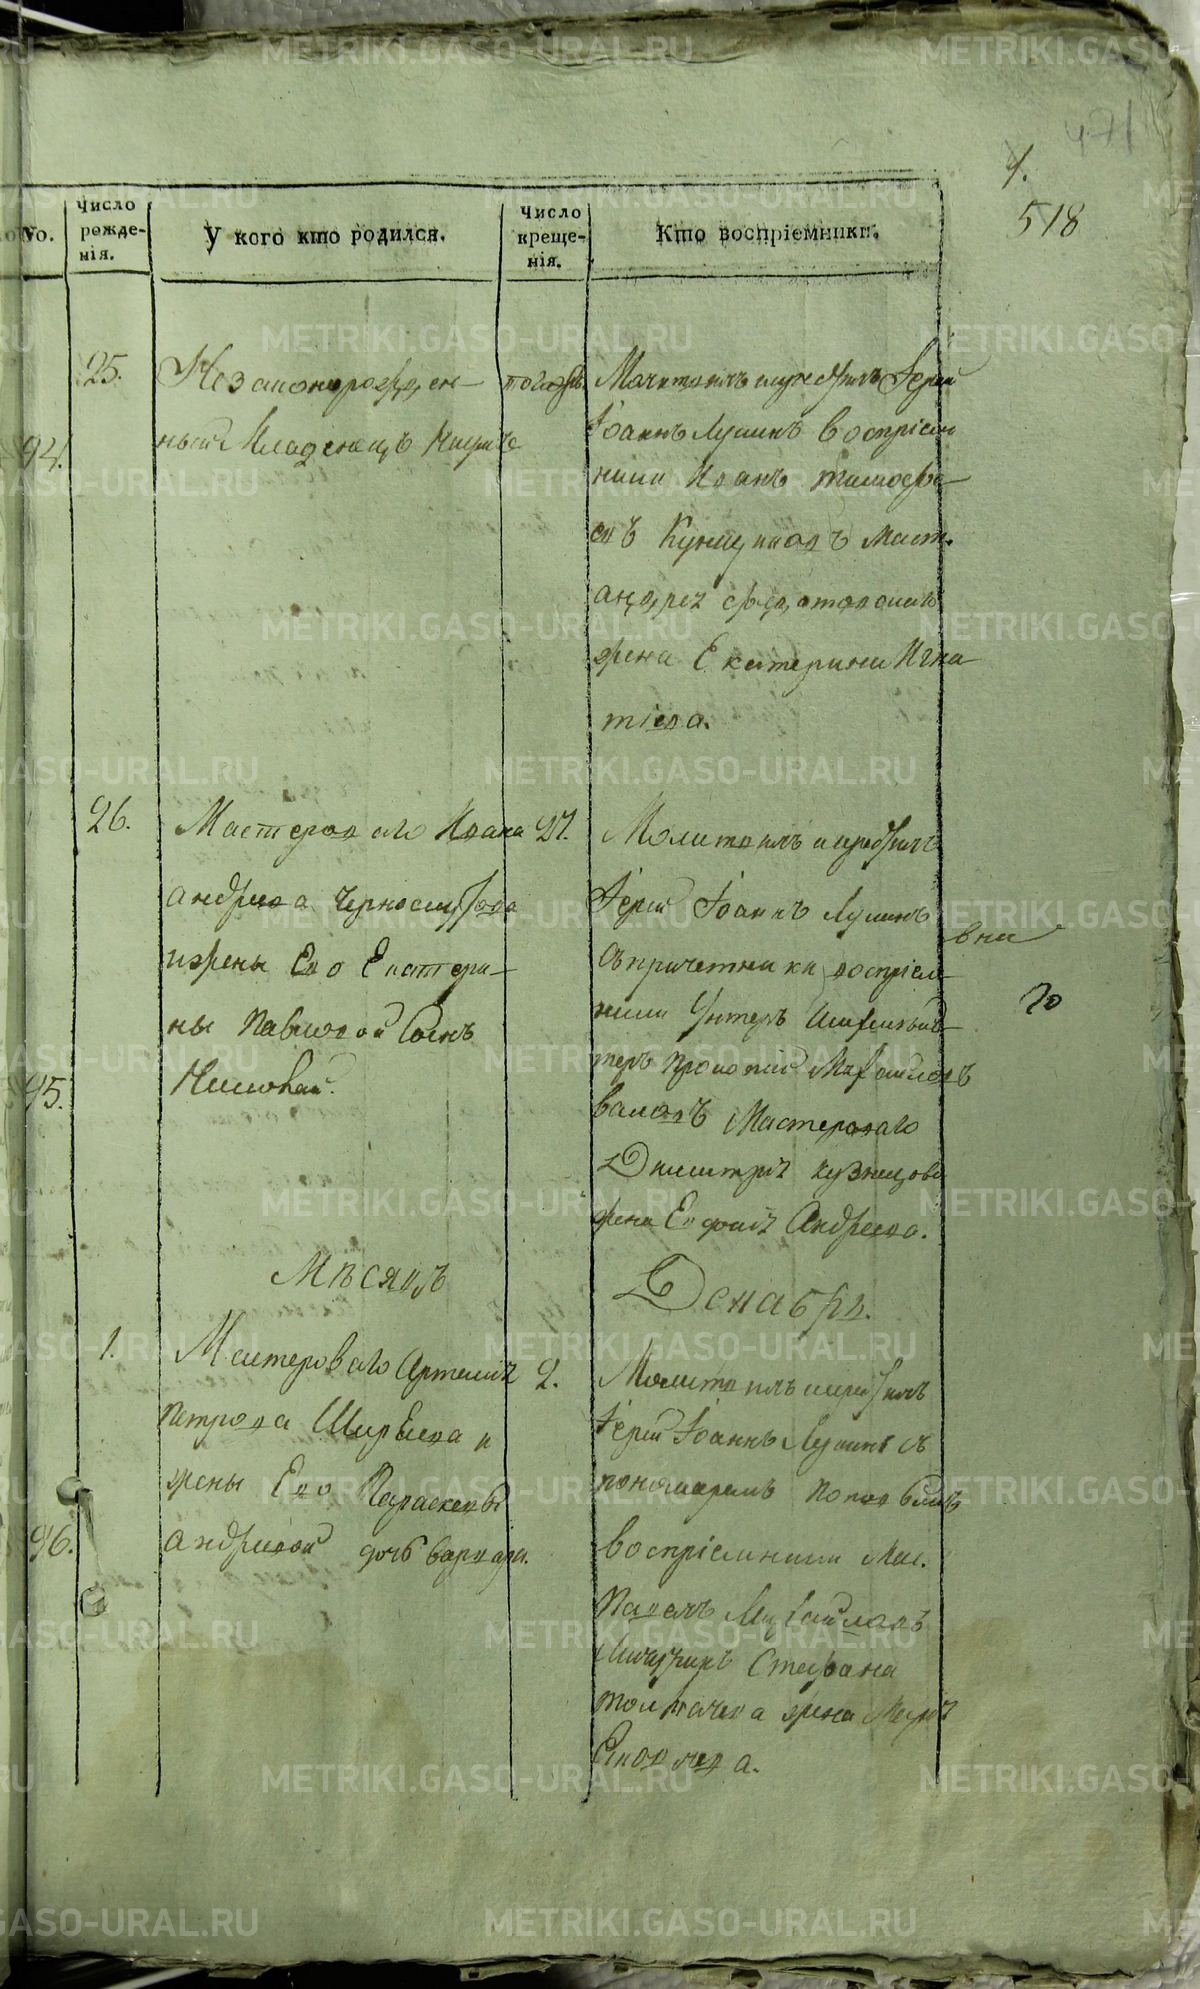 471
1.
518
No.
Число рожде-нія.
У кого кто родился.
Число креще-нія.
Кто воспріемники.
94.
25.
Незаконорожден-
ный Младенецъ
тогожъ
Молитвилъ и крестилъ Іерей
Іоаннъ Лукинъ воспріем
ники Иванъ тимофе-
евъ Маст.
андрея
жена Екатерина Игна-
тіева.
95.
26.
Мастероваго Ивана
андреева
ижены Его Екатери-
ны Павловой Сынъ
Николай.
27.
Молитвилъ икрестилъ
Іерей Іоаннъ Лукинъ
съпричетники воспріем-
ники Унтеръ Шихтмей-
теръ Прокопій Михайловъ
валовъ Мастероваго
Димитрія кузнецова
жена Евдокія Андреева.
вни
20
Мѣсяцъ
Декабрь.
96.
1.
Мастероваго Артемія
Петрова Ширяева и
жены Его Параскевы
андреевой дочь варвара.
2.
Молитвилъ икрестилъ
Іерей Іоаннъ Лукинъ съ
пономаремъ Поповымъ
воспріемники Мас.
Павелъ Михайловъ
Стефана
толмачева жена Марія
Яковлева.
METRIKI.GASO-URAL.RU